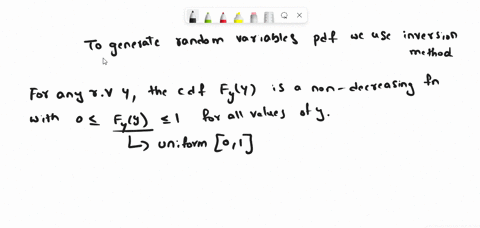 To generate random variables pdf we use inversion
method
For any r.v Y, the cdf Fy(Y) is a non-decreasing fn
with 0 ≤ Fy(y) ≤ 1 for all values of y.
↳ uniform [0,1]